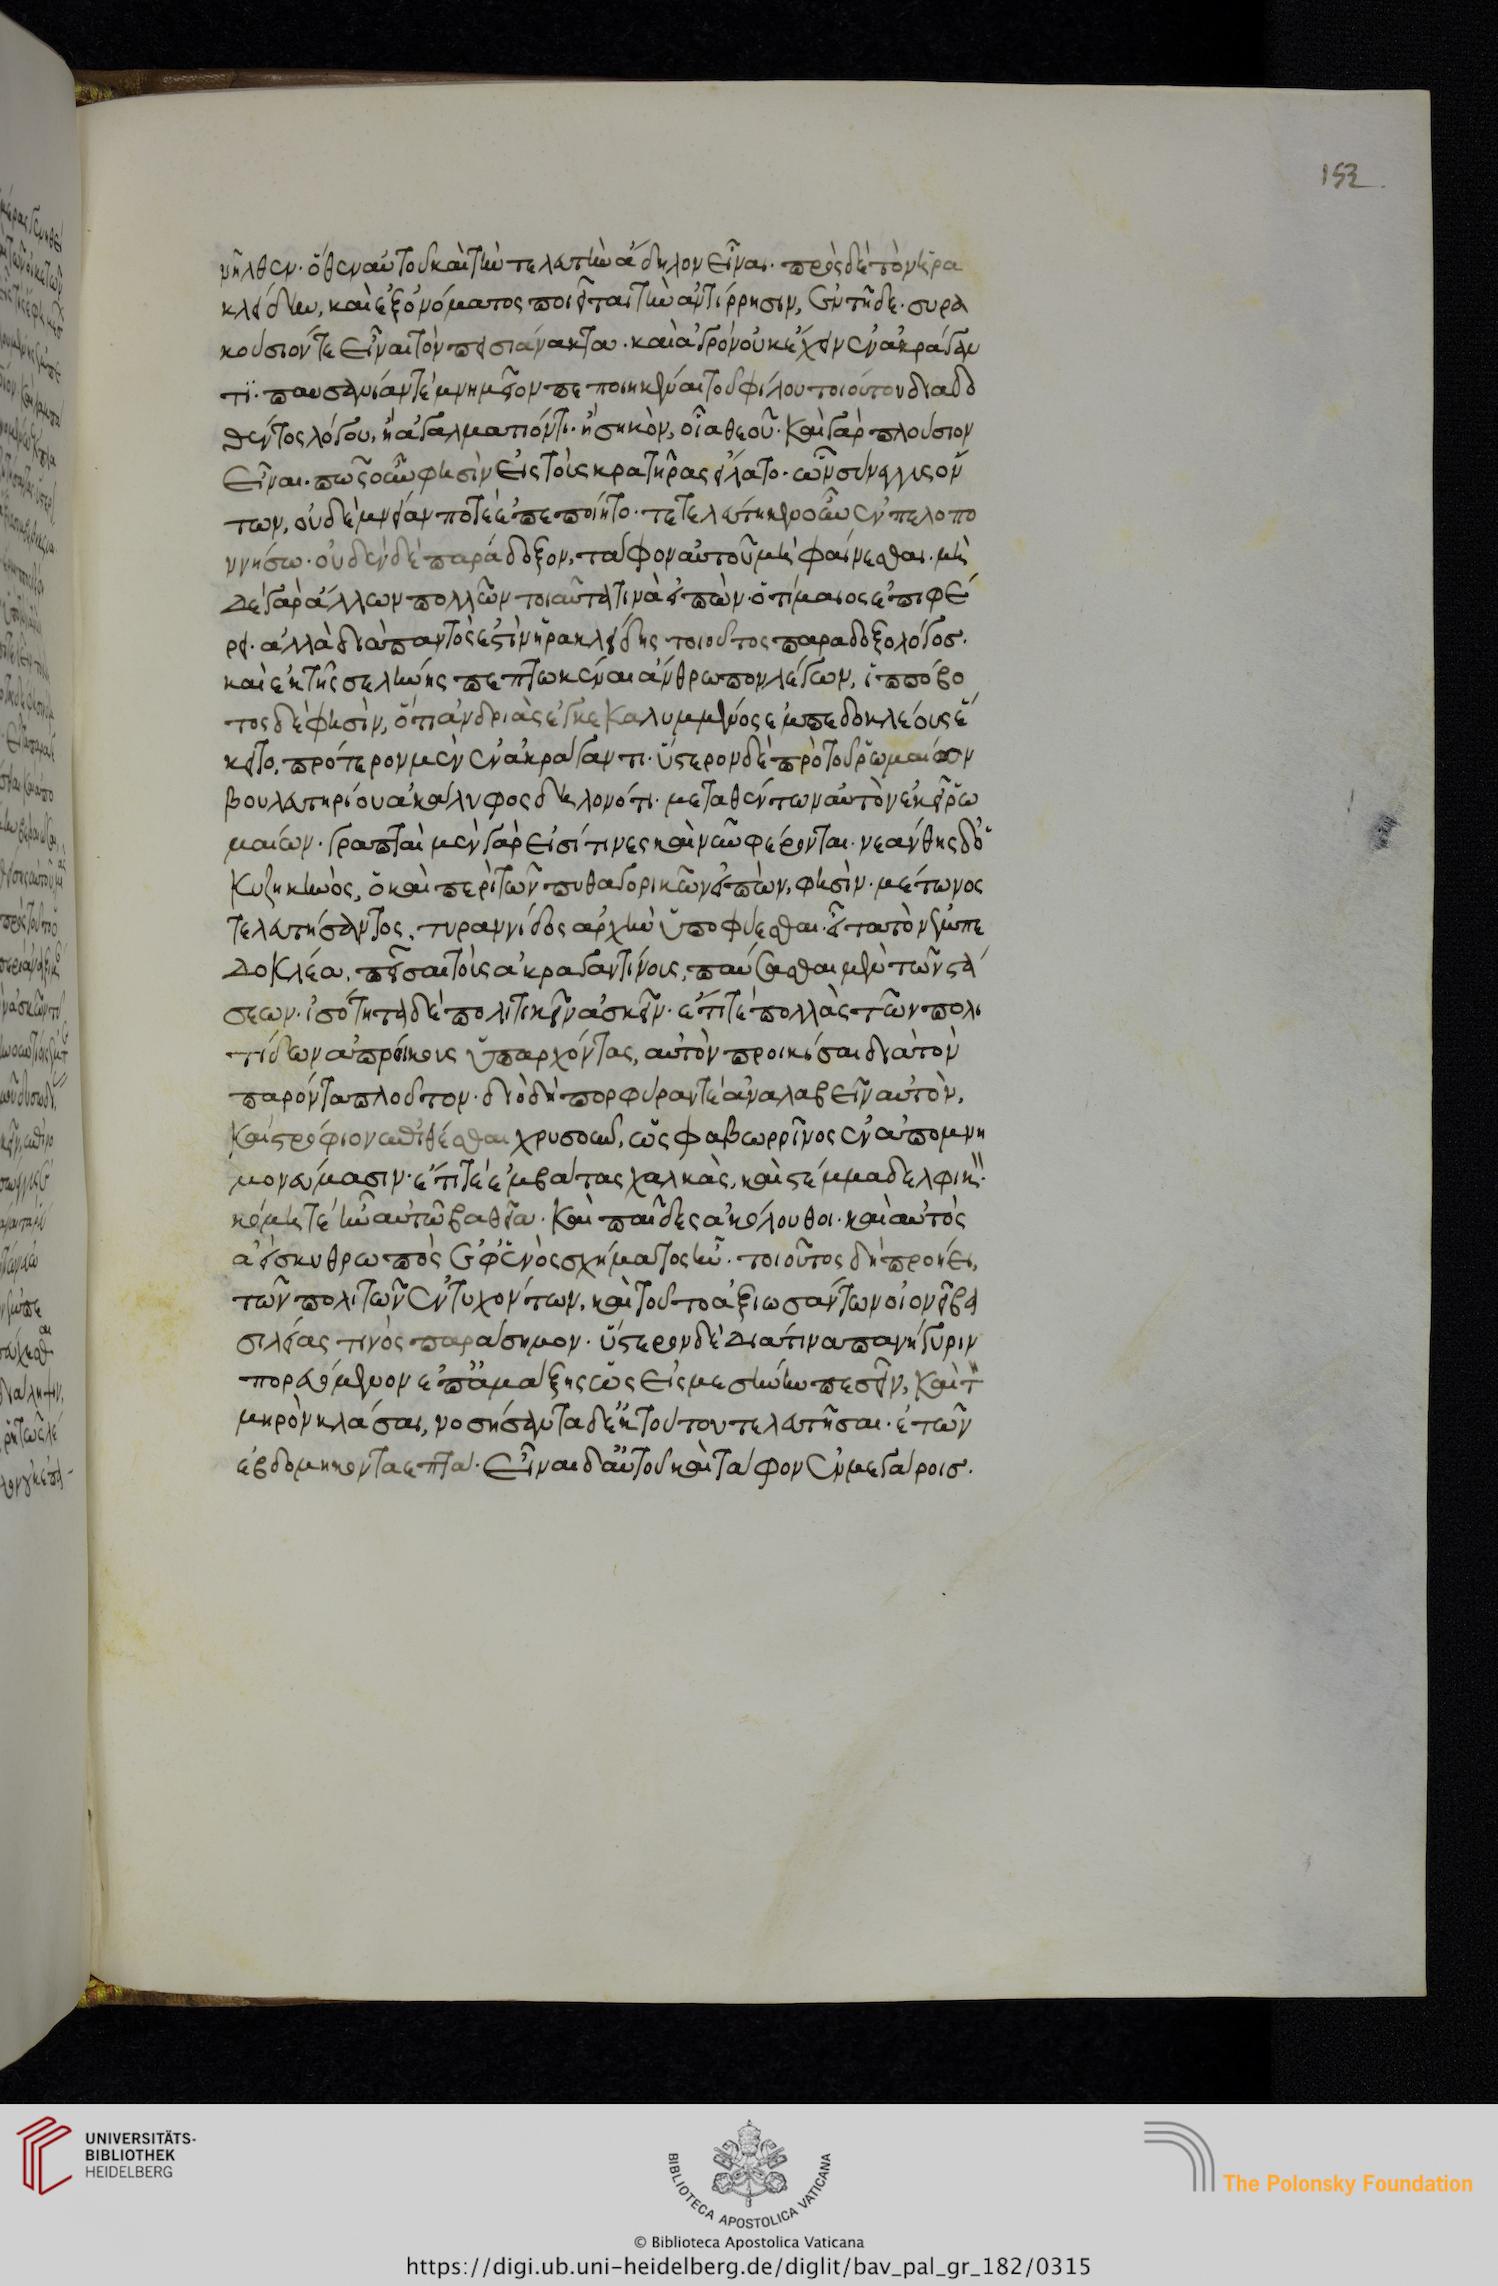 153
νῆλθεν· ὅθεν αὐτοῦ καὶ τὴν τελευτὴν ἄδηλον εἶναι. πρὸς δὲ τὸν ἡρα
κλείδην, καὶ ἐξ ὀνόματος ποιεῖται τὴν ἀντίρρησιν, ἐν τῇ δε. συρα
κούσιόν τε εἶναι τὸν πεισιάνακτα. καὶ ἀγρὸν οὐκ ἔχειν ἐν ἀκράγαν
τι. παυσανίαν τὲ μνημεῖον πεποιηκέναι τοῦ φίλου τοιούτου διαδο
θέντος λόγου, ἢ ἀγαλμάτιόν τι. ἢ σηκὸν, οἷα θεοῦ. καὶ γὰρ πλούσιον
εἶναι. πῶς οὖν φησὶν εἰς τοὺς κρατῆρας εἵλατο. ὧν σύνεγγυς ὄν
των, οὐδὲ μνείαν ποτὲ ἐπεποίητο. τετελεύτηκεν οὖν ἐν πελοπο
ννήσω. οὐδὲν δὲ παράδοξον, τάφον αὐτοῦ μὴ φαίνεσθαι. μη
δὲ γὰρ ἄλλων πολλῶν τοιαῦτά τινα εἰπὼν. ὁ τίμαιος ἐπιφέ
ρει. ἀλλὰ διαπαντὸς ἐστὶν ἡρακλείδης τοιοῦτος παραδοξολόγος.
καὶ ἐκ τῆς σελήνης πεπτωκέναι ἄνθρωπον λέγων, ἱππόβο
τος δέ φησὶν, ὅτι ἀνδριὰς ἐγκεκαλυμμένος ἐμπεδοκλέους ἔ
κειτο, πρότερον μὲν ἐν ἀκράγαντι. ὕστερον δὲ πρὸ τοῦ ῥωμαίων
βουλευτηρίου ἀκάλυφος δηλονότι. μεταθέντων αὐτὸν ἐκεῖ ῥω
μαίων. γραπταὶ μὲν γὰρ εἰσί τινες καὶ νῦν φέρονται. νεάνθης δ' ὁ
κυζικηνὸς, ὁ καὶ περὶ τῶν πυθαγορικῶν εἰπὼν, φησὶν. μέτωνος
τελευτήσαντος, τυραννίδος ἀρχὴν ὑποφύεσθαι. εἶτα τὸν ἐμπε
δοκλέα, πεῖσαι τοὺς ἀκραγαντίνους, παύσασθαι μὲν τῶν στά
σεων. ἰσότητα δὲ πολιτικὴν ἀσκεῖν. ἔτι τὲ πολλὰς τῶν πολι
τίδων ἀπροίκους ὑπαρχόντας, αὐτὸν προικίσαι διὰ τὸν
παρόντα πλοῦτον. διὸ δὴ πορφύραν τὲ ἀναλαβεῖν αὐτὸν,
καὶ στρόφιον ἐπιθέσθαι χρυσοῦν, ὡς φαβωρρῖνος ἐν ἀπομνη
μονεύμασιν. ἔτι τὲ ἐμβάτας χαλκὰς, καὶ στέμμα δελφικὸν.
κόμη τὲ ἦν αὐτῷ βαθεῖα. καὶ παῖδες ἀκόλουθοι. καὶ αὐτὸς
ἀεὶ σκυθρωπὸς ἐφ' ἑνὸς σχήματος ἦν. τοιοῦτος δὴ προήει,
τῶν πολιτῶν ἐντυχόντων, καὶ τοῦτο ἀξιωσάντων οἱονεὶ βα
σιλείας τινὸς παράσημον. ὕστερον δὲ διά τινα πανήγυριν
πορευόμενον ἐπ' ἀμάξης ὡς εἰς μεσήνην πεσεῖν, καὶ τὸν
μηρὸν κλάσαι, νοσήσαντα δ' ἐκ τούτου τελευτῆσαι. ἐτῶν
ἑβδομήκοντα ἑπτά. εἶναι δ' αὐτοῦ καὶ τάφον ἐν μεγάροις.
UNIVERSITÄTS-
BIBLIOTHEK
HEIDELBERG
BIBLIOTECA APOSTOLICA VATICANA
The Polonsky Foundation
© Biblioteca Apostolica Vaticana
https://digi.ub.uni-heidelberg.de/diglit/bav_pal_gr_182/0315